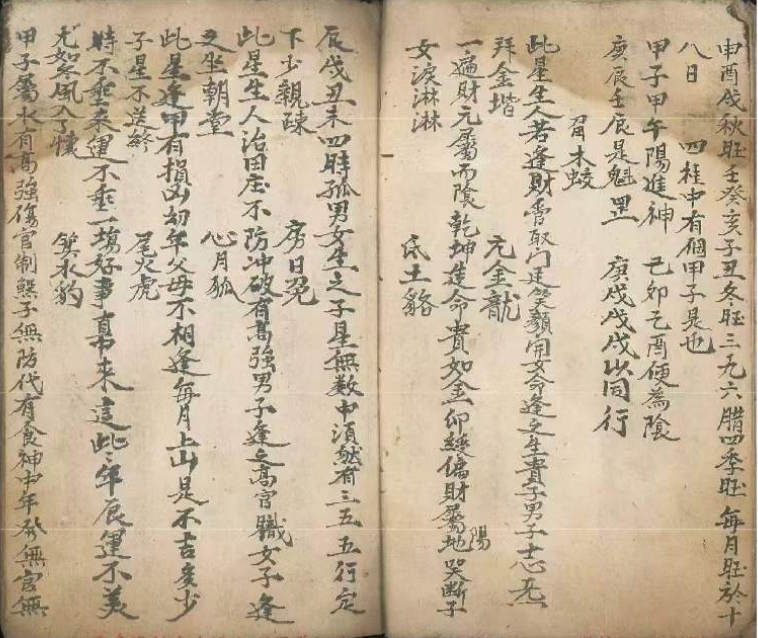 申酉戌秋旺壬癸亥子丑冬旺三九六腊四季旺每月旺於十
八日 四柱中有個甲子是也
甲子甲午陽進神 己卯己酉便為陰
庚辰壬辰是魁罡 庚戌戊戌以同行
角木蛟
此星生人若逢財香取門廷笑顏開女命逢之生貴子男子
拜金堦 亢金龍
一遍財元屬而陰 乾坤造命貴如金 仰 財屬地陽哭斷子
女淚淋淋 氐土貉
辰戌丑未四時孤男女生之子星無数中須然有三五五行定
下少親疎 房日兔
此星生人治田庄不防冲破有高強男子逢之高官職女子逢
之坐朝堂 心月狐
此星逢甲有損凶初年父母不相逢每月上山是不吉多少
子星不送終 尾火虎
時不至来運不乖一塲好事 来這此年辰運不美
尤如冬風入了懷 箕水豹
甲子屬水有高強傷官制 子無防代有食神中年發無官無